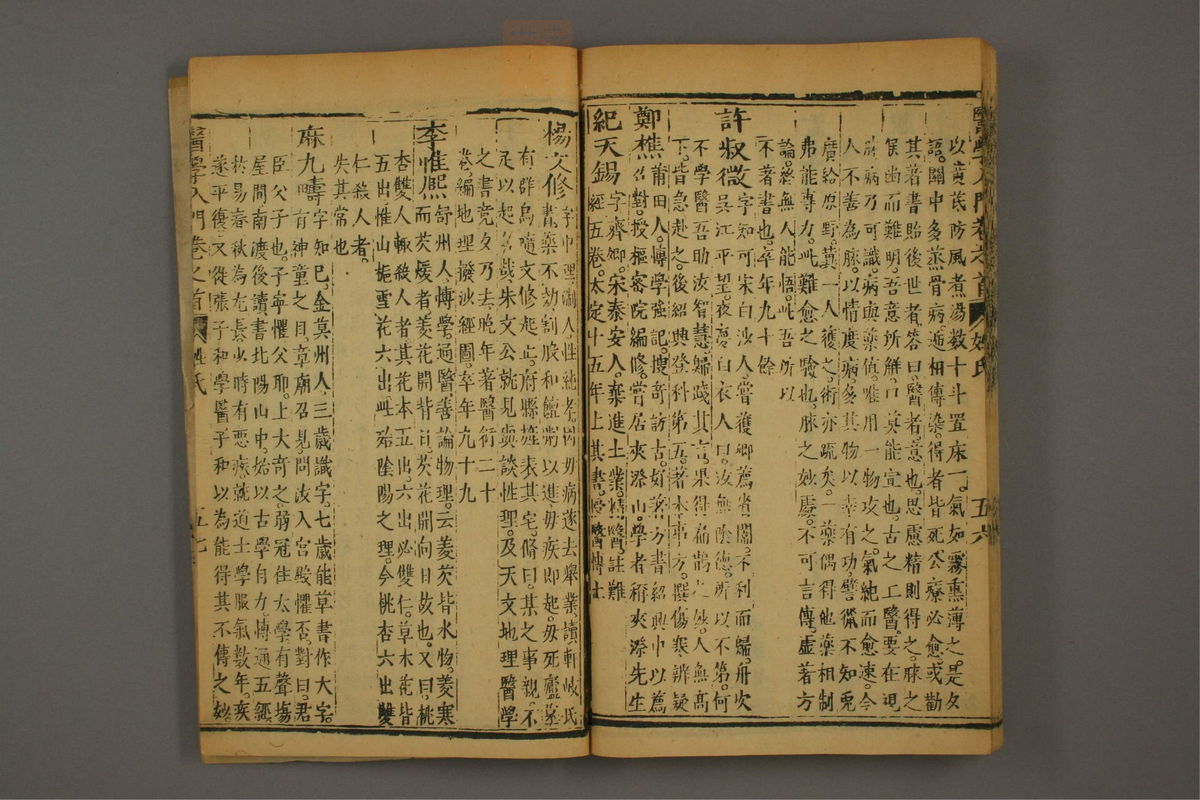 醫學入門卷之首 姓氏 五六
以黃芪防風煮湯數十斗置床下氣如霧熏薄之是夕
語關中多蒸骨病遞相傳染得者皆死公療必愈或勸
其著書貽後世者答曰醫者意也思慮精則得之脉之
候幽而難明吾意所解口莫能宣也古之上醫要在視
脉病乃可識病與藥值唯用一物攻之氣純而愈速今
人不善為脉以情度病多其物以幸有功譬獵不知兎
廣給原野冀一人獲之術亦疏矣一藥偶得他藥相制
弗能專力此難愈之驗也脉之妙處不可言傳虛著方
論終無人能悟此吾所以
不著書也卒年九十餘
許叔微字知可宋白沙人嘗獲鄉薦省闈不利而歸舟次
吳江平望夜夢白衣人曰汝無陰德所以不第何
不學醫吾助汝智慧歸踐其言果得扁鵲之妙人無高
下皆急赴之後紹興登科第五著本事方撰傷寒辨疑
鄭樵莆田人博學強記搜奇訪古好著方書紹興中以薦
召對授樞密院編修嘗居夾漈山學者稱夾漈先生
紀天錫字齊卿宋泰安人棄進士業精醫註難
經五卷大定十五年上其書授醫博士
楊文修字中理浙人性純孝因母病遂去舉業讀軒岐氏
書藥不効割股和饘粥以進母疾即起母死廬墓
有群烏隨文修起止府縣旌表其宅脩曰某之事親不
足以起名哉朱文公就見與談性理及天文地理醫學
之書竟夕乃去晚年著醫術二十
卷編地理撥沙經圖卒年九十九
李惟熙舒州人博學通醫善論物理云菱芡皆水物菱寒
而芡煖者菱花開背日芡花開向日故也又曰桃
杏雙人輙殺人者其花本五出六出必雙仁草木花皆
五出惟山梔雪花六出此殆陰陽之理今桃杏六出雙
仁殺人者
失其常也
麻九疇字知己金莫州人三歲識字七歲能草書作大字
有神童之目章廟召見問汝入宮殿懼否對曰君
臣父子也子寧懼父耶上大奇之弱冠往太學有聲塲
屋間南渡後讀書北陽山中始以古學自力博通五經
於易春秋為尤長少時有惡疾就道士學服氣數年疾
遂平復又從張子和學醫子和以為能得其不傳之妙
醫學入門卷之首 姓氏 五七